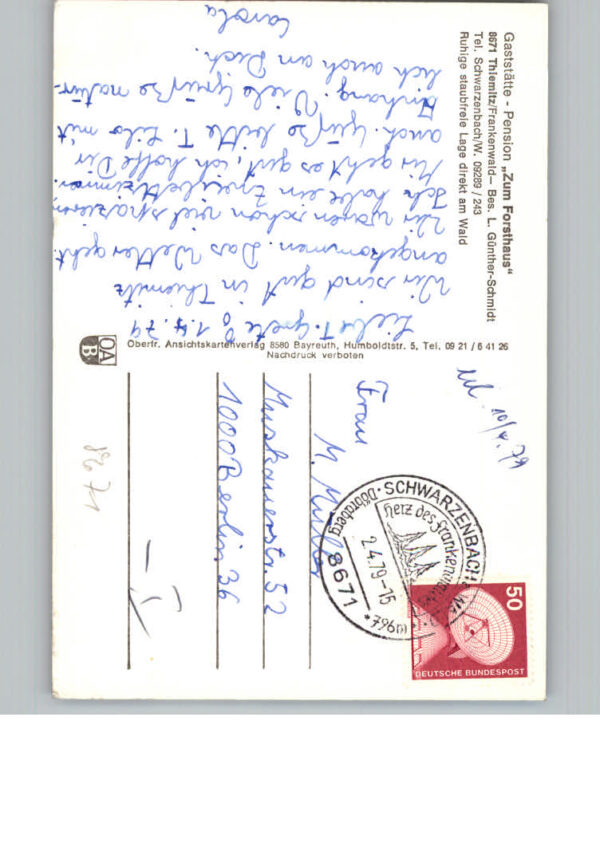 Gaststätte - Pension „Zum Forsthaus"
8671 Thiemitz/Frankenwald – Bes. L. Günther-Schmidt
Tel. Schwarzenbach/W. 09289 / 243
Ruhige staubfreie Lage direkt am Wald
Liebe T. Grete 1.4.79
Wir sind gut in Thiemitz
angekommen. Das Wetter geht.
Wir waren schon viel spazieren,
Ich habe ein Zweibettzimmer.
Mir geht es gut, ich hoffe Dir
auch. Grüße bitte T. Lilo mit
Anhang. Viele Grüße natür-
lich auch an Dich.
Carola
OA
B
Oberfr. Ansichtskartenverlag 8580 Bayreuth, Humboldtstr. 5, Tel. 09 21 / 6 41 26
Nachdruck verboten
10/4.79
Frau
M. Müller
Muskauerstr. 52
1000 Berlin 36
8671
SCHWARZENBACH a. Wald
Herz des Frankenwaldes
Döbraberg
2.4.79-15
*796m*
8671
50
DEUTSCHE BUNDESPOST